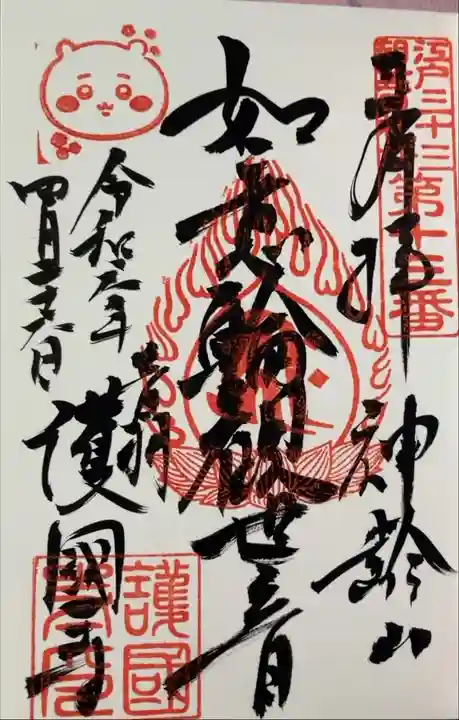 江戸三十三
第十三番
奉拝 神齢山
如意輪観世音
音羽 護國寺
令和
四月
護國